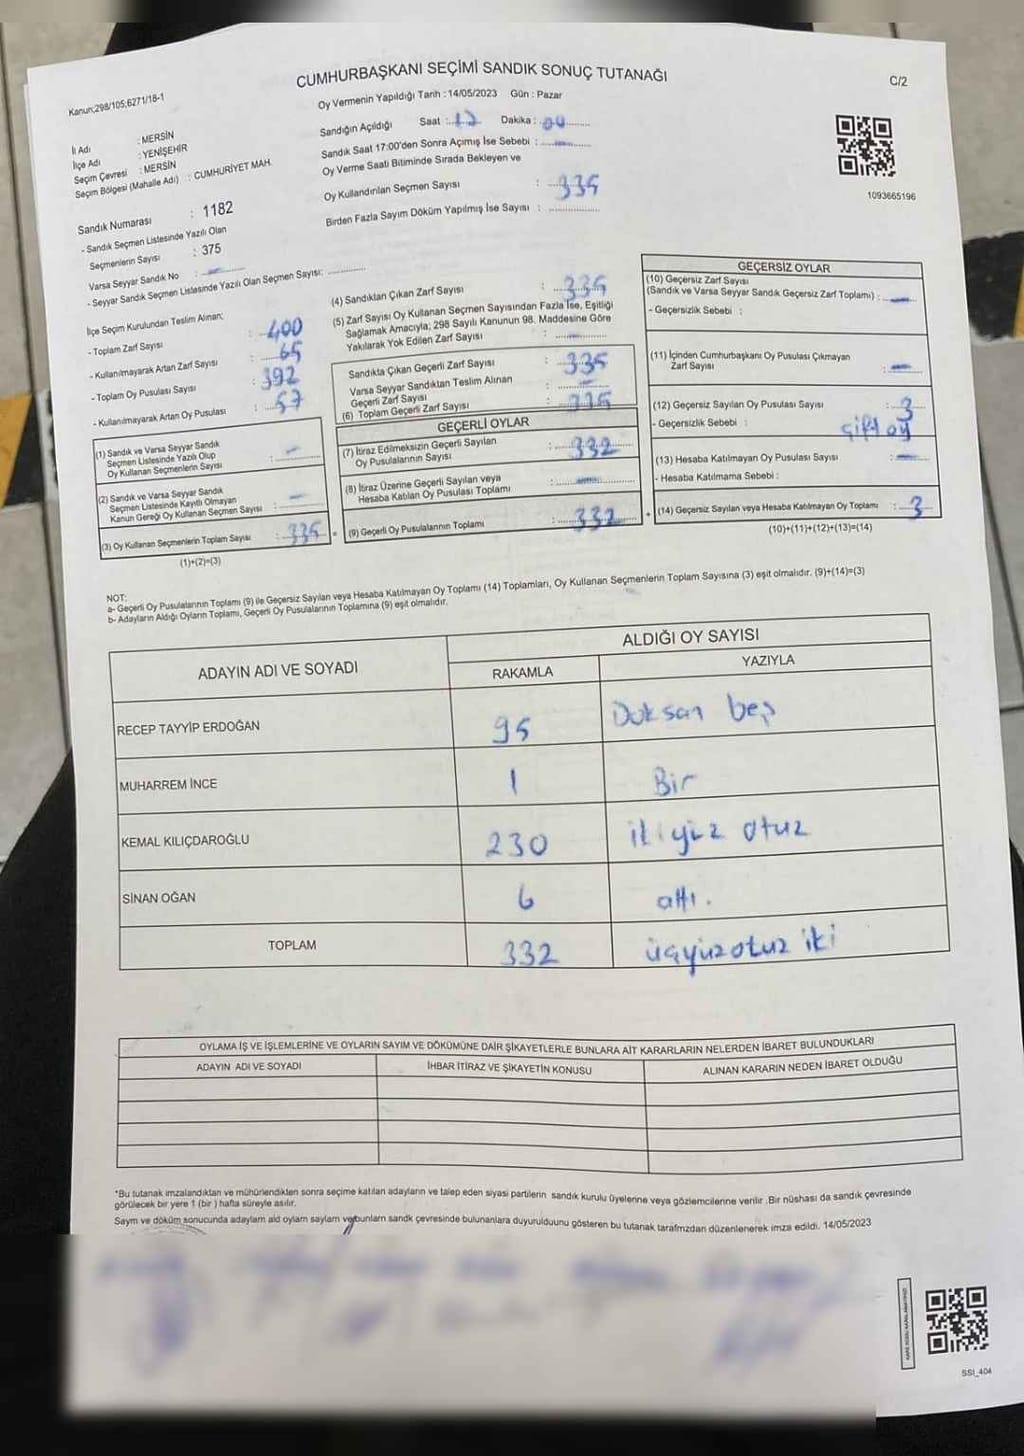 CUMHURBAŞKANI SEÇİMİ SANDIK SONUÇ TUTANAĞI
C/2
Kanun;298/105;6271/18-1
Oy Vermenin Yapıldığı Tarih : 14/05/2023 Gün : Pazar
Sandığın Açıldığı Saat : Dakika :
Sandık Saat 17:00'den Sonra Açımış İse Sebebi :
Oy Verme Saati Bitiminde Sırada Bekleyen ve
Oy Kullandırılan Seçmen Sayısı : 335
Birden Fazla Sayım Döküm Yapılmış İse Sayısı :
1093665196
İl Adı : MERSİN
İlçe Adı : YENİŞEHİR
Seçim Çevresi : MERSİN
Seçim Bölgesi (Mahalle Adı) : CUMHURİYET MAH.
Sandık Numarası : 1182
- Sandık Seçmen Listesinde Yazılı Olan
Seçmenlerin Sayısı : 375
Varsa Seyyar Sandık No :
- Seyyar Sandık Seçmen Listesinde Yazılı Olan Seçmen Sayısı:
İlçe Seçim Kurulundan Teslim Alınan;
- Toplam Zarf Sayısı : 400
- Kullanılmayarak Artan Zarf Sayısı : 65
- Toplam Oy Pusulası Sayısı : 392
- Kullanılmayarak Artan Oy Pusulası : 57
(1) Sandık ve Varsa Seyyar Sandık
Seçmen Listesinde Yazılı Olup
Oy Kullanan Seçmenlerin Sayısı : -
(2) Sandık ve Varsa Seyyar Sandık
Seçmen Listesinde Kayıtlı Olmayan
Kanun Gereği Oy Kullanan Seçmen Sayısı : -
(3) Oy Kullanan Seçmenlerin Toplam Sayısı : 335
(1)+(2)=(3)
(4) Sandıktan Çıkan Zarf Sayısı : 335
(5) Zarf Sayısı Oy Kullanan Seçmen Sayısından Fazla İse, Eşitliği
Sağlamak Amacıyla; 298 Sayılı Kanunun 98. Maddesine Göre
Yakılarak Yok Edilen Zarf Sayısı : -
Sandıkta Çıkan Geçerli Zarf Sayısı : 335
Varsa Seyyar Sandıktan Teslim Alınan
Geçerli Zarf Sayısı : -
(6) Toplam Geçerli Zarf Sayısı : 335
GEÇERLİ OYLAR
(7) İtiraz Edilmeksizin Geçerli Sayılan
Oy Pusulalarının Sayısı : 332
(8) İtiraz Üzerine Geçerli Sayılan veya
Hesaba Katılan Oy Pusulası Toplamı : -
(9) Geçerli Oy Pusulalarının Toplamı : 332
GEÇERSİZ OYLAR
(10) Geçersiz Zarf Sayısı
(Sandık ve Varsa Seyyar Sandık Geçersiz Zarf Toplamı) : -
- Geçersizlik Sebebi :
(11) İçinden Cumhurbaşkanı Oy Pusulası Çıkmayan
Zarf Sayısı : -
(12) Geçersiz Sayılan Oy Pusulası Sayısı : 3
- Geçersizlik Sebebi : çift oy
(13) Hesaba Katılmayan Oy Pusulası Sayısı : -
- Hesaba Katılmama Sebebi :
(14) Geçersiz Sayılan veya Hesaba Katılmayan Oy Toplamı : 3
(10)+(11)+(12)+(13)=(14)
NOT:
a- Geçerli Oy Pusulalarının Toplamı (9) ile Geçersiz Sayılan veya Hesaba Katılmayan Oy Toplamı (14) Toplamları, Oy Kullanan Seçmenlerin Toplam Sayısına (3) eşit olmalıdır. (9)+(14)=(3)
b- Adayların Aldığı Oyların Toplamı, Geçerli Oy Pusulalarının Toplamına (9) eşit olmalıdır.
ADAYIN ADI VE SOYADI
ALDIĞI OY SAYISI
RAKAMLA
YAZIYLA
RECEP TAYYİP ERDOĞAN 95 Doksan beş
MUHARREM İNCE 1 Bir
KEMAL KILIÇDAROĞLU 230 ikiyüz otuz
SİNAN OĞAN 6 altı.
TOPLAM 332 üçyüzotuz iki
OYLAMA İŞ VE İŞLEMLERİNE VE OYLARIN SAYIM VE DÖKÜMÜNE DAİR ŞİKAYETLERLE BUNLARA AİT KARARLARIN NELERDEN İBARET BULUNDUKLARI
ADAYIN ADI VE SOYADI
İHBAR İTİRAZ VE ŞİKAYETİN KONUSU
ALINAN KARARIN NEDEN İBARET OLDUĞU
*Bu tutanak imzalandıktan ve mühürlendikten sonra seçime katılan adayların ve talep eden siyasi partilerin sandık kurulu üyelerine veya gözlemcilerine verilir .Bir nüshası da sandık çevresinde
görülecek bir yere 1 (bir ) hafta süreyle asılır.
Sayım ve döküm sonucunda
çevresinde bulunanlara duyurulduunu gösteren bu tutanak tarafmzdan düzenlenerek imza edildi. 14/05/2023
SSI_404